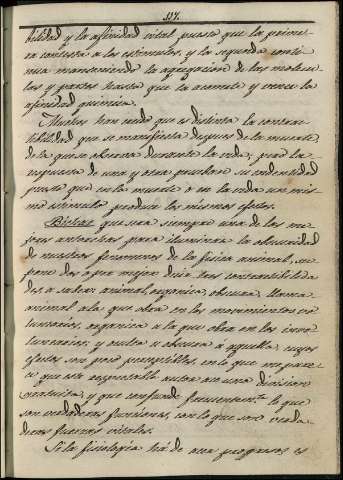 117.
bilidad y la afinidad vital puesto que la prime-
ra contesta a los estimulos, y la segunda conti-
nua manteniendo la agregacion de las molecu-
las y partes hasta que la acomete y vence la
afinidad quimica.
Muchos han creido que es distinta la contrac-
tibilidad que se manifiesta despues de la muerte,
de la que se observa durante la vida; pero la
respuesta de una y otra prueban su indentidad
puesto que en la muerte o en la vida un mis-
mo estimulo produce los mismos efectos.
Bichat que sera siempre una de las me-
jores antorchas para iluminar la obscuridad
de nuestros fenomenos de la fisica animal, su-
pone dos o por mejor decir tres contractibilida-
des, a saber: animal, organica, obscura, llama
animal a la que obra en los movimientos vo-
luntarios, organica a la que obra en los invo-
luntarios; y ultra u obscura á aquella, cuyos
efectos son poco perceptibles, en lo que me pare-
ce que este respetable autor da una division
gratuita, y que confunde frecuentem.te lo que
son verdaderas funciones, con lo que son verda-
deras fuerzas vitales.
Si la fisiologia há de hacer progresos es